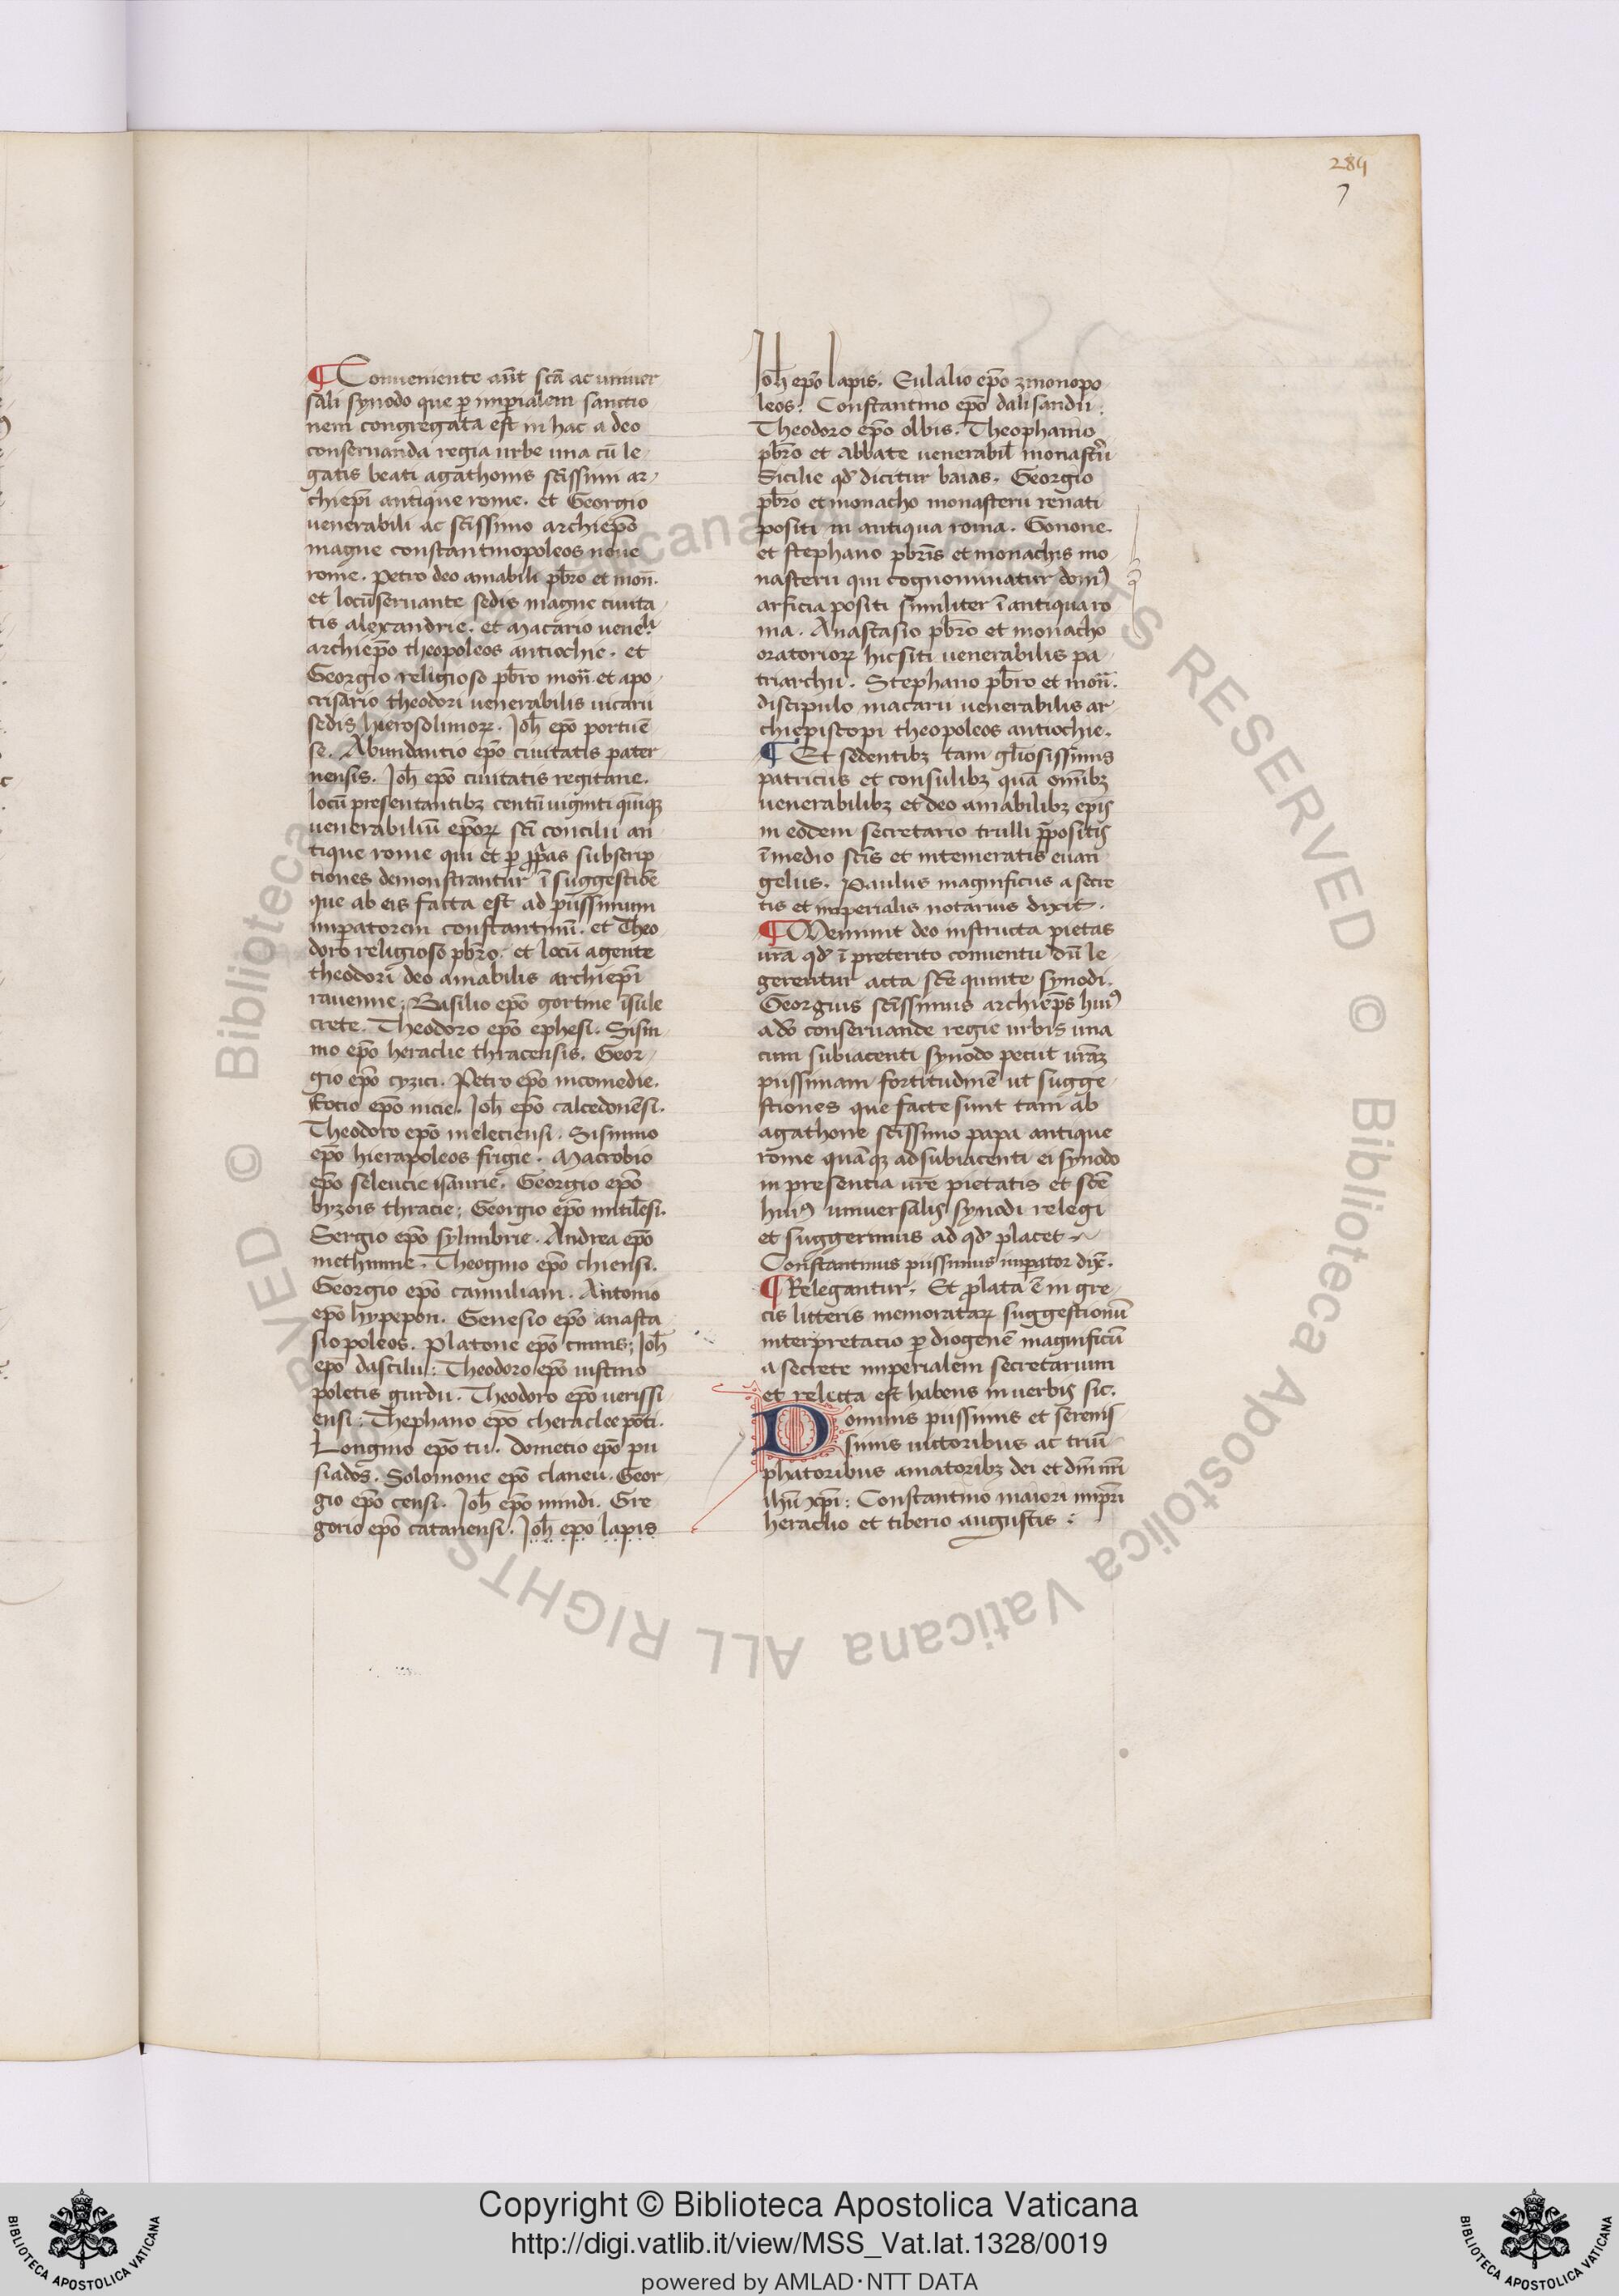 284
7
¶ Conueniente aūt scā ac uniuer
sali synodo que ꝑ imꝑialem sanctio
nem congregata est in hac a deo
conseruanda regia urbe una cū le
gatis beati agathonis scīssimi ar
chiepī antique rome. et Georgio
uenerabili ac scīssimo archiepō
magne constantinopoleos noue
rome. Petro deo amabili pb̄ro et mon̄.
et locūseruante sedis magne ciuita
tis alexandrie. et Macario ueneb̄li
archiepō theopoleos antiochie. et
Georgio religioso pb̄ro mon̄. et apo
crisario theodori uenerabilis uicarii
sedis hierosolimoꝝ. Joh̄ epō portuē
se. Abundantio epō ciuitatis pater
nensis. Joh̄ epō ciuitatis regitane.
locū presentantibꝫ centū uiginti quīqꝫ
uenerabiliū epōꝝ scī concilii an
tique rome qui et ꝑ ꝓp̄as subscrip
tiones demonstrantur ī suggestiōe
que ab eis facta est ad piissimum
imꝑatorem constantinū. et Theo
doro religioso pb̄ro. et locū agente
theodori deo amabilis archiepī
rauenne; Basilio epō gortine īsule
crete. Theodoro epō ephesi. Sisin
nio epō heraclie thracensis. Geor
gio epō cyzici. Petro epō nicomedie.
Fotio epō nicie. Joh̄ epō calcedonēsi.
Theodoro epō meleciensi. Sisinnio
epō hierapoleos frigie. Macrobio
epō seleucie isaurie. Georgio epō
byzois thracie; Georgio epō mitilēsi.
Sergio epō sylimbrie. Andrea epō
methimne. Theognio epō chiensi.
Georgio epō camuliam. Antonio
epō hypepon. Genesio epō anasta
siopoleos. Platone epō cinnis; Joh̄
epō dascilii: Theodoro epō iustino
poletis gurdii. Theodoro epō uerissi
ensi: Thephano epō cheraclee pōti.
Longino epō tii. dometio epō pru
siados. Solomone epō claneu. Geor
gio epō censi. Joh̄ epō mindi. Gre
gorio epō catanensi. Joh̄ epo lapis
Joh̄ epō lapis. Eulalio epō zmonopo
leos. Constantino epō dalisandii.
Theodoro epō olbis. Theophanio
pb̄ro et abbate uenerabil̄ monast̄ii
Sicilie qđ dicitur baias. Georgio
pb̄ro et monacho monasterii renati
positi in antiqua roma. Conone.
et stephano pb̄ris et monachis mo
nasterii qui cognominatur domꝰ
arsicia positi similiter ī antiqua ro
ma. Anastasio pb̄ro et monacho
oratorioꝝ hic siti uenerabilis pa
triarchii. Stephano pb̄ro et mon̄.
discipulo macarii uenerabilis ar
chiepiscopi theopoleos antiochie.
¶ Et sedentibꝫ tam gl̄iosissimis
patriciis et consulibꝫ quā om̄ibꝫ
uenerabilibꝫ et deo amabilibꝫ epīs
in eodem secretario trulli p̄positis
ī medio scīs et intemeratis euan
geliis. Paulus magnificus a secre
tis et imperialis notarius dixit.
¶ Meminit deo instructa pietas
ur̄a qđ ī preterito conuentu dū le
gerentur acta scē quinte synodi.
Georgius scīssimus archiep̄s huiꝰ
a dō conseruande regie urbis una
cum subiacenti synodo petiit ur̄aꝫ
piissimam fortitudinē ut sugge
stiones que facte sunt tam ab
agathone scīssimo papa antique
rome quāqꝫ ad subiacenti ei synodo
in presentia ur̄e pietatis et scē
huiꝰ uniuersalis synodi relegi
et suggerimus ad qđ placet
Constantinus piissimus imꝑator dix̄.
¶ Relegantur. Et ꝓlata ē in gre
cis litteris memorataꝝ suggestionū
interpretacio ꝑ diogenē magnificū
a secrete imperialem secretarium
et relecta est habens in uerbis sic.
Dominis piissimis et serenis
simis uictoribus ac triū
phatoribus amatoribꝫ dei et dnī nr̄i
ihū xp̄i: Constantino maiori imp̄ri
heraclio et tiberio augustis :
Copyright © Biblioteca Apostolica Vaticana
http://digi.vatlib.it/view/MSS_Vat.lat.1328/0019
powered by AMLAD·NTT DATA
BIBLIOTECA APOSTOLICA VATICANA
BIBLIOTECA APOSTOLICA VATICANA
© Biblioteca Apostolica Vaticana ALL RIGHTS RESERVED © Biblioteca Apostolica Vaticana ALL RIGHTS RESERVED